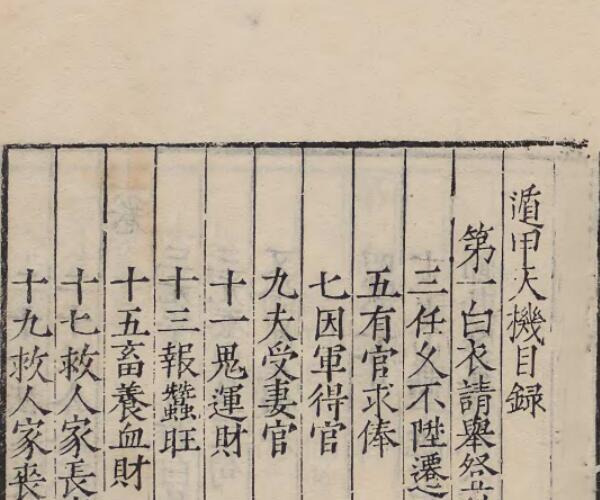 遁甲天機目録
第一白衣請舉祭
三任久不陞遷
五有官求俸
七因軍得官
九夫受妻官
十一鬼運財
十三報蠶旺
十五畜養血財
十七救人家長
十九救人家喪